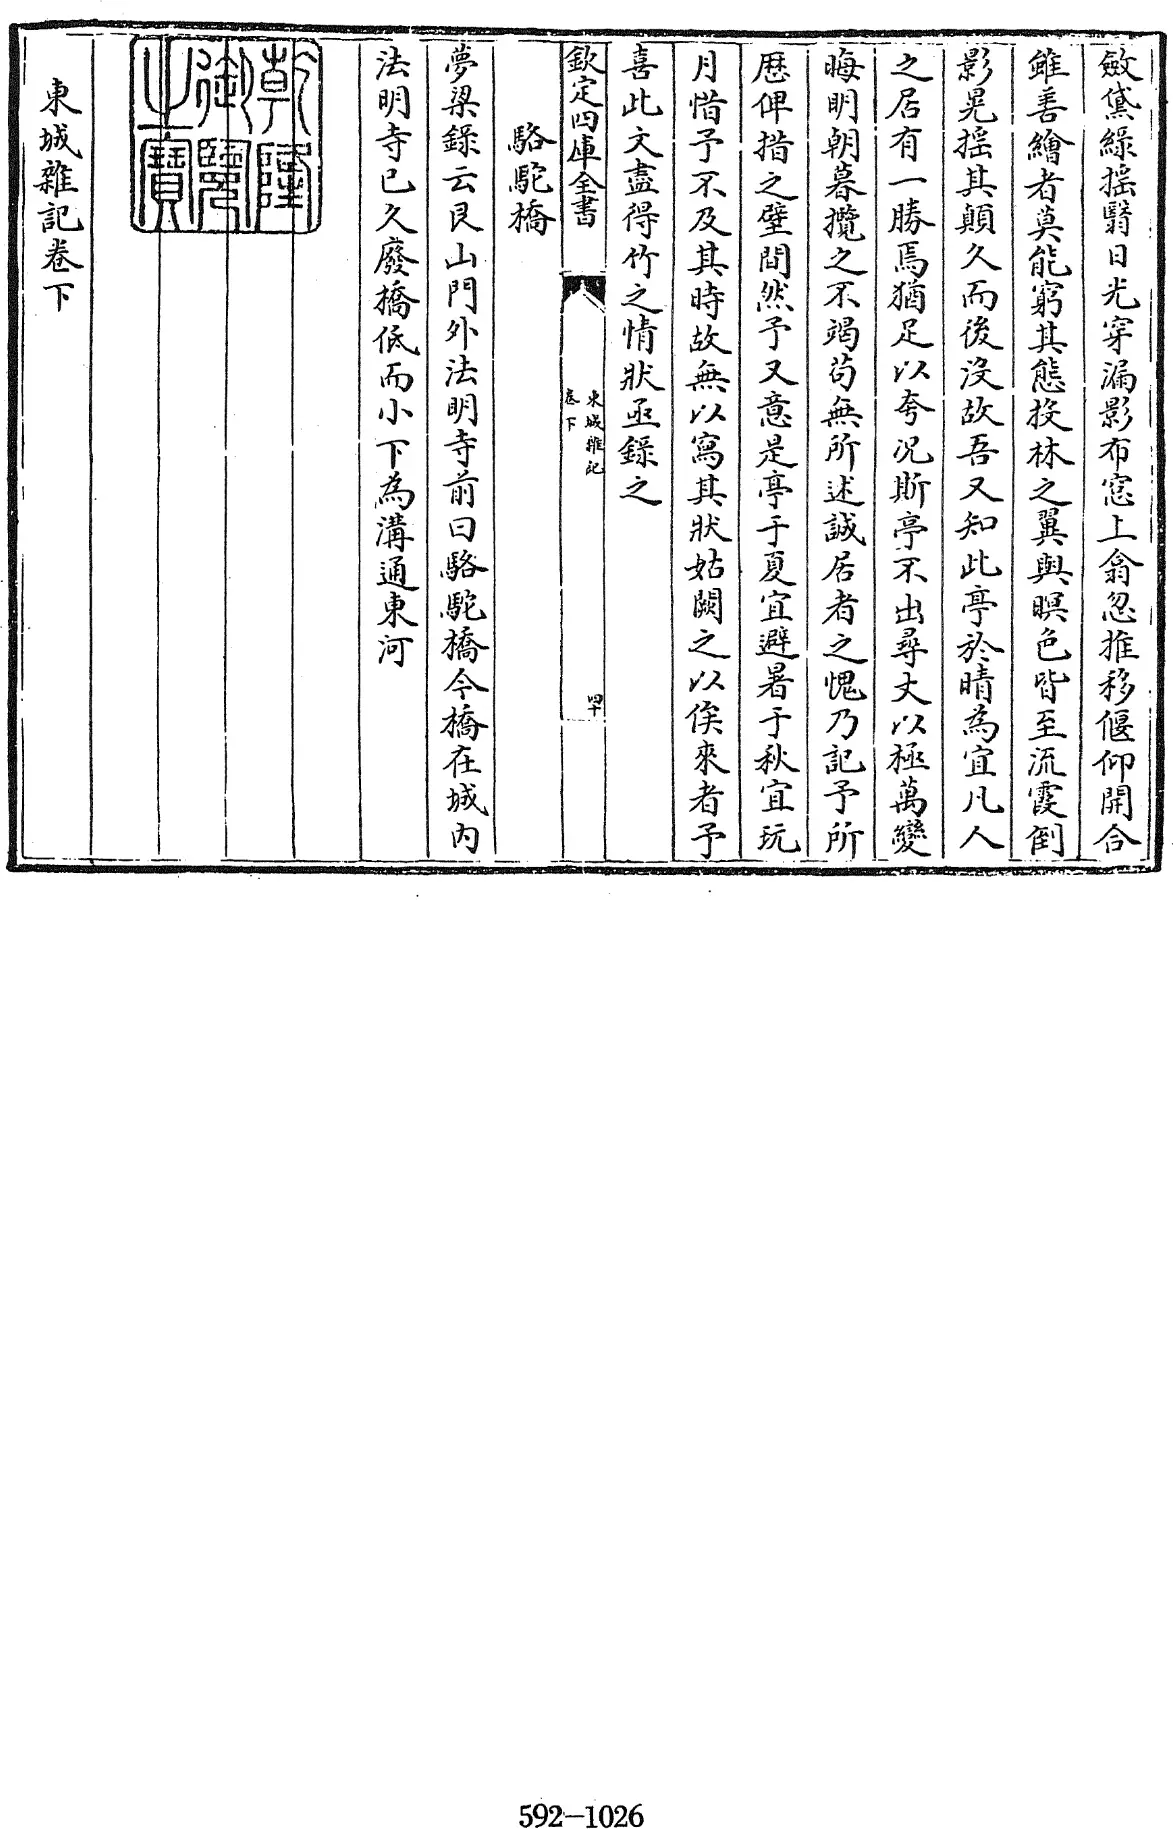 斂黛綠揺翳日光穿漏影布窓上翕忽推移偃仰開合
雖善繪者莫能窮其態投林之翼與暝色皆至流霞倒
影晃揺其顛久而後没故吾又知此亭於晴為宜凡人
之居有一勝焉猶足以夸况斯亭不出尋丈以極萬變
晦明朝暮攬之不竭茍無所述誠居者之愧乃記予所
歴俾揩之壁間然予又意是亭于夏宜避暑于秋宜玩
月惜予不及其時故無以寫其狀姑闕之以俟來者予
喜此文盡得竹之情狀亟錄之
欽定四庫全書
東城雜記
卷下
四十
駱駝橋
夢梁錄云艮山門外法明寺前曰駱駝橋今橋在城内
法明寺已久廢橋低而小下為溝通東河
乾隆
御覽
之寶
東城雜記卷下
592-1026